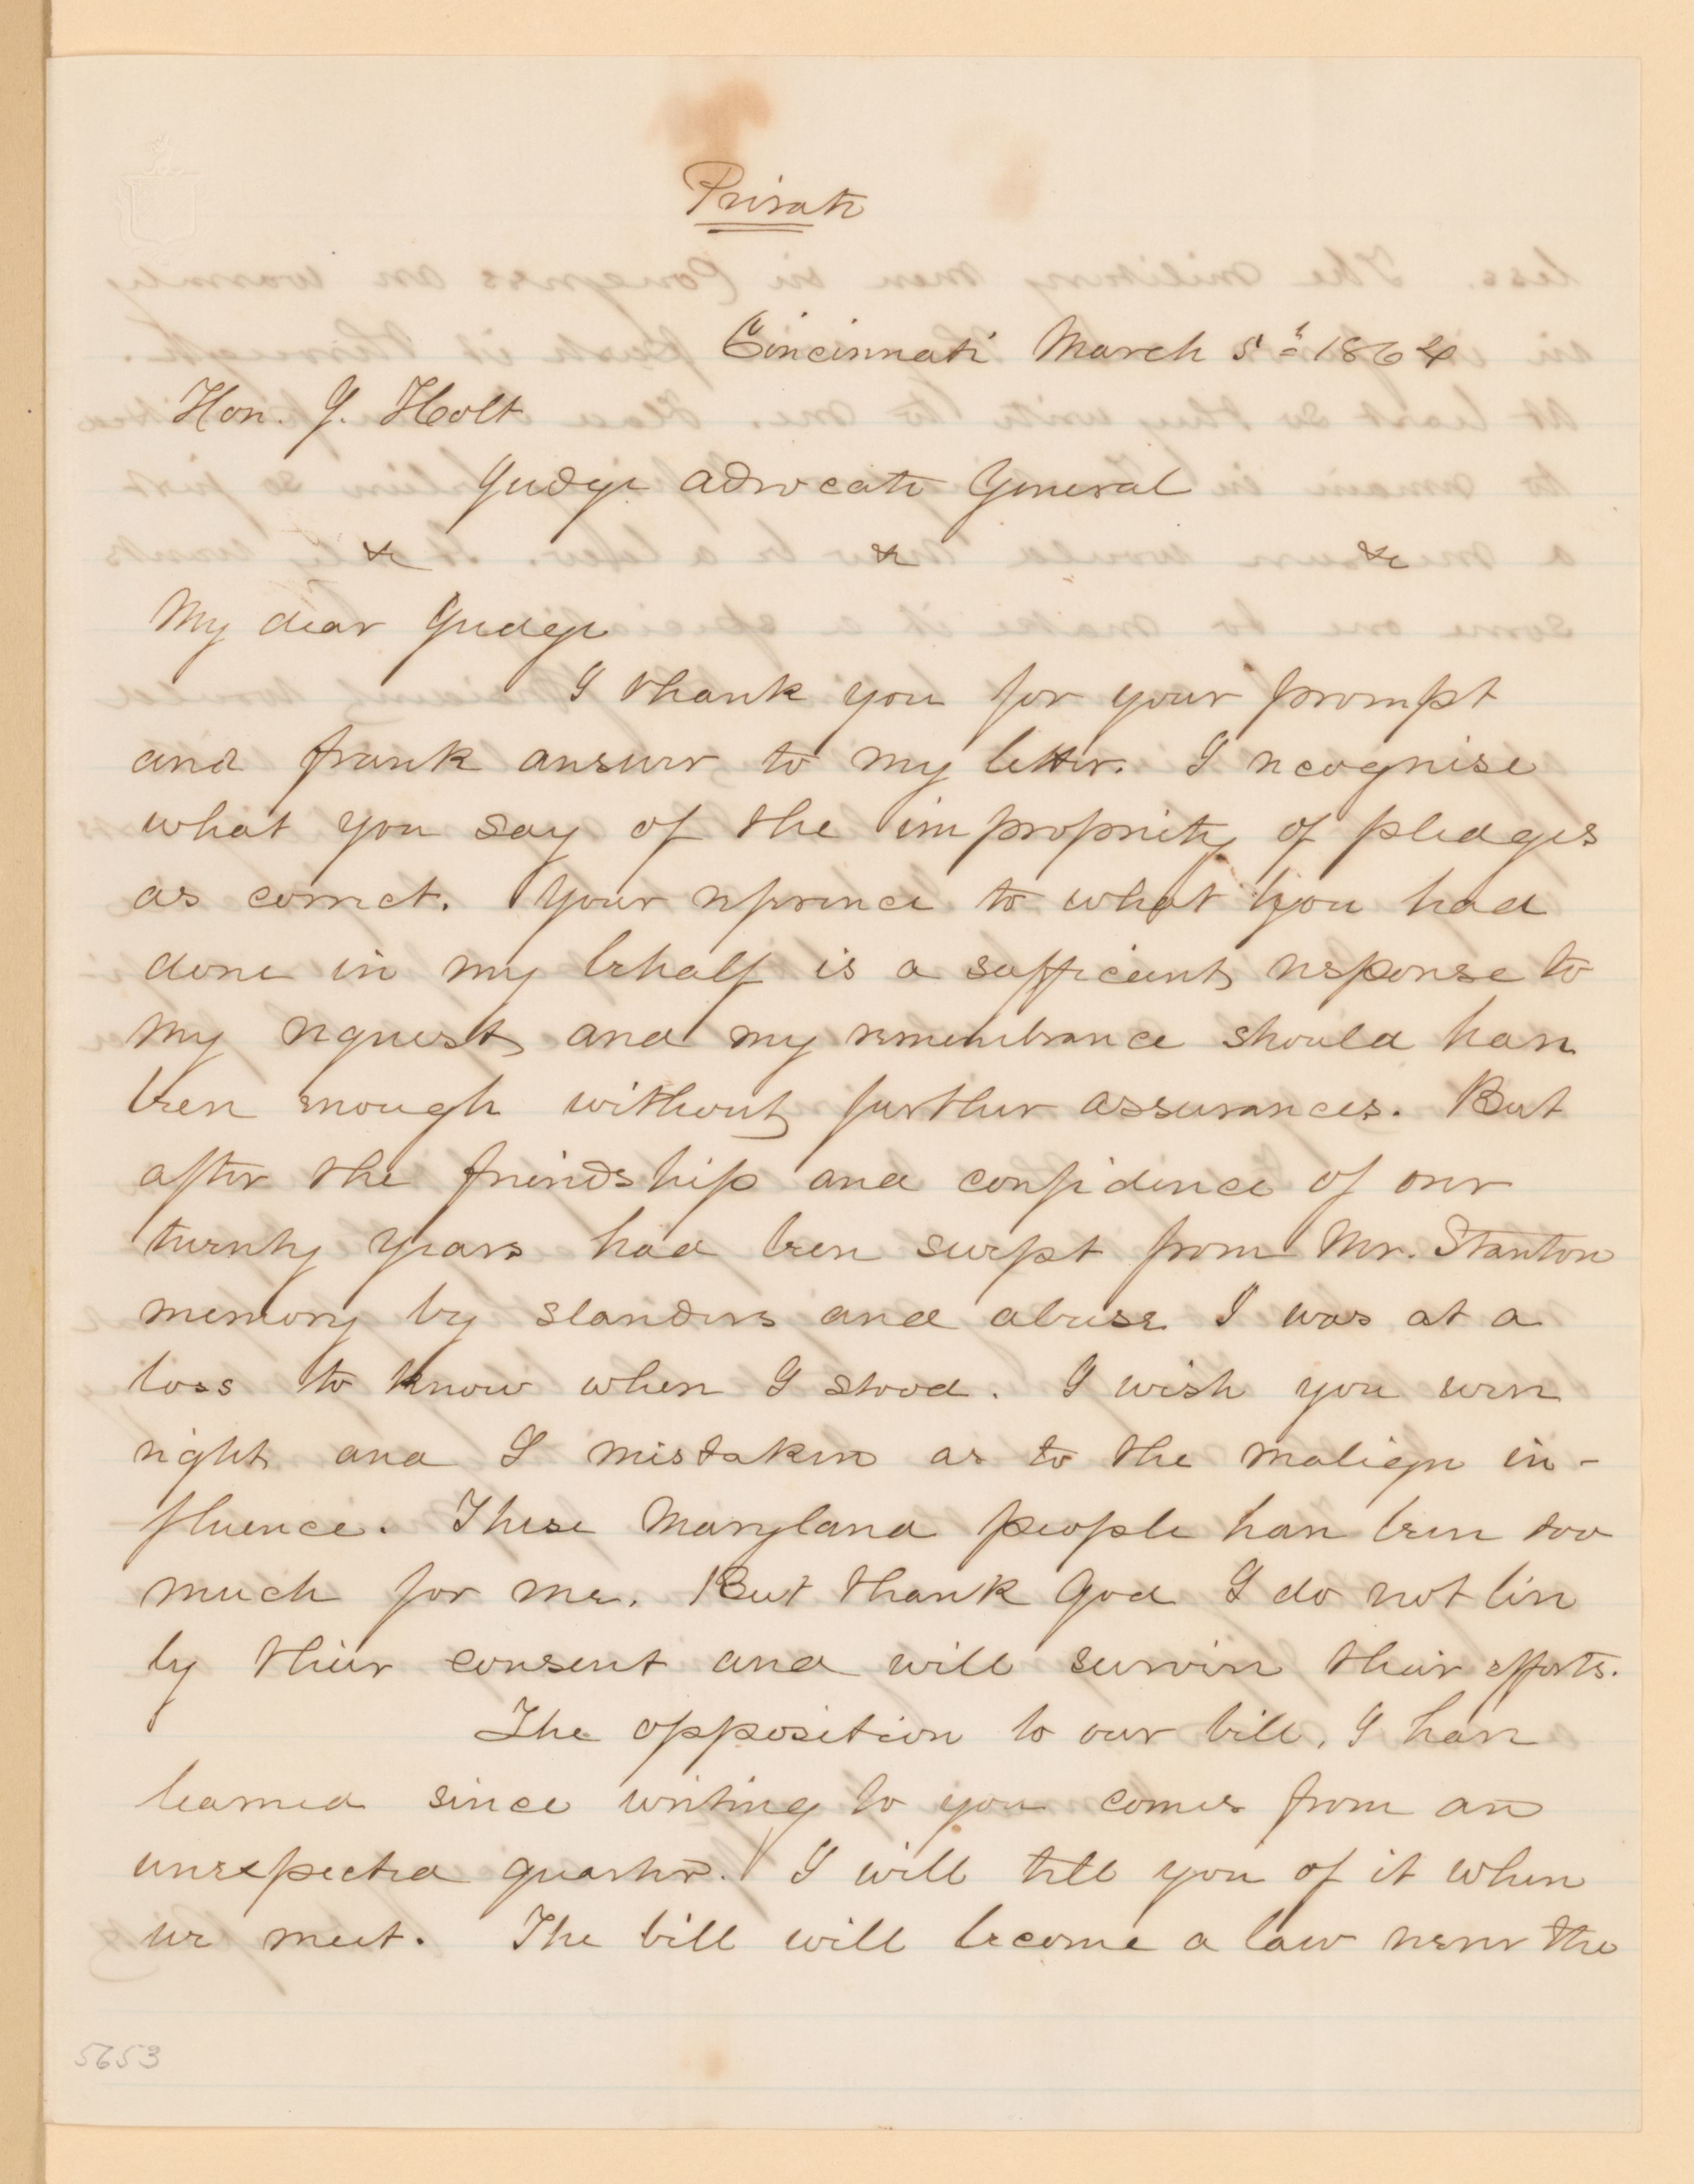 Private
Cincinnati March 5th 1864
Hon. J. Holt
Judge Advocate General
&c &c &c
My dear Judge
I thank you for your prompt
and frank answer to my letter. I recognise
what you say of the impropriety of pledges
as correct. Your reference to what you had
done in my behalf is a sufficient response to
my request and my remembrance should have
been enough without further assurances. But
after the friendship and confidence of over
twenty years had been swept from Mr. Stanton
memory by slanders and abuse I was at a
loss to know where I stood. I wish you were
right and I mistaken as to the malign in-
fluence. These Maryland people have been too
much for me. But thank God I do not live
by their consent and will survive their efforts.
The opposition to our bill, I have
learned since writing to you comes from an
unexpected quarter. I will tell you of it when
we meet. The bill will become a law never the
5653